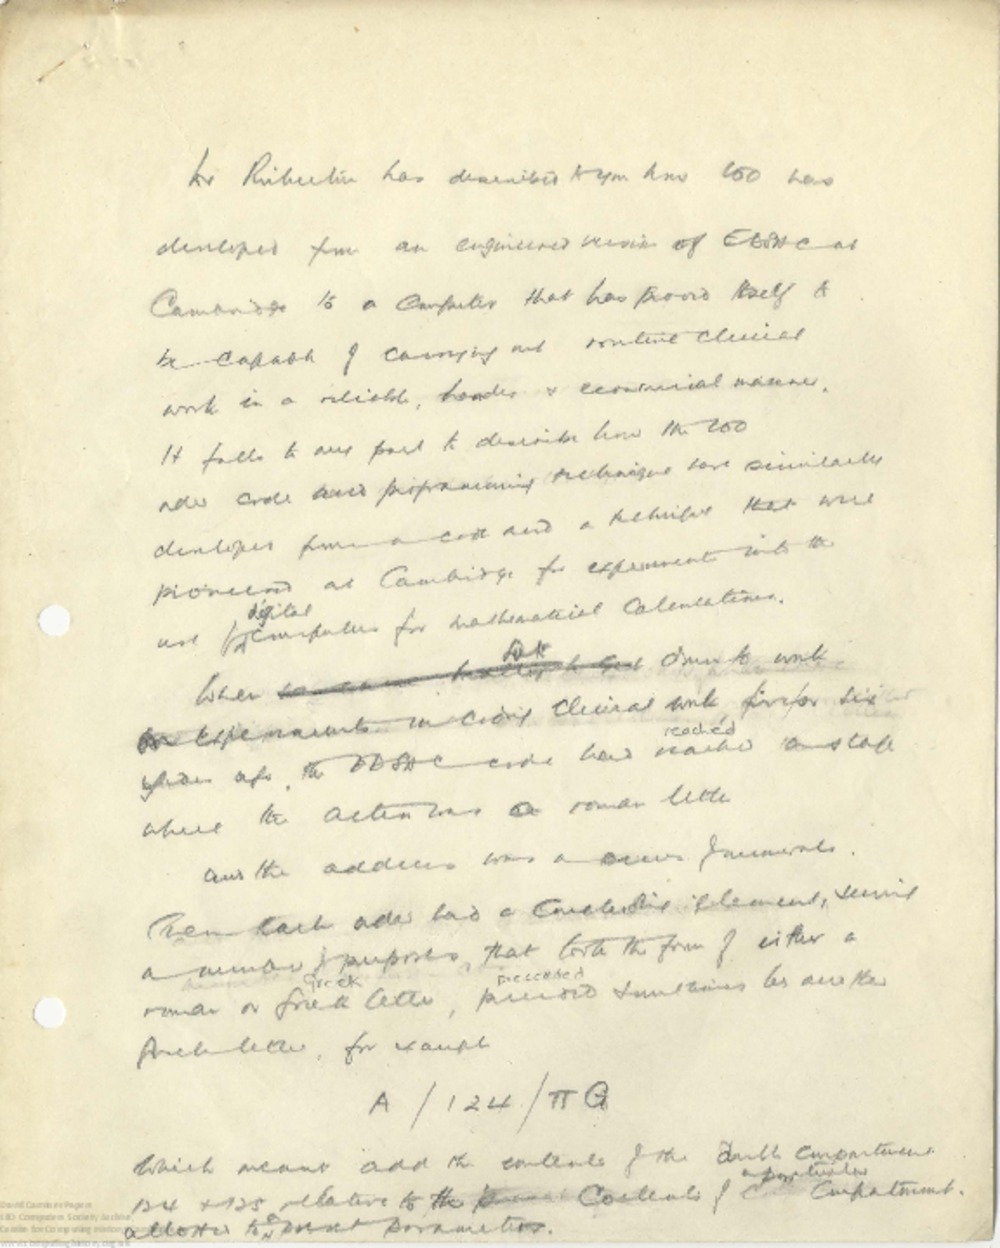 has described to you how LEO was
developed from an engineered version of EDSAC at
Cambridge to a computer that has proved itself to
be capable of carrying out routine clerical
work in a reliable, & economical manner.
It falls to my part to describe how the LEO
order code and programming technique were similarly
developed from a code and a technique that were
pioneered at Cambridge for experiments into the
digital
use of computers for mathematical calculations.
When down to work
experiments in coding clerical work for six
reached
years ago, the EDSAC code had reached a stage
where the action was a roman letter
and the address was a series of numerals.
Then each order had a concluding element, serving
a number of purposes, that took the form of either a
Greek preceded
roman or Greek letter, preceded sometimes by another
Greek letter, for example
A / 124 / π G
Which meant add the contents of the double compartment
a particular
124 + 125 relative to the Contents of Compartment.
allotted to preset parameters.